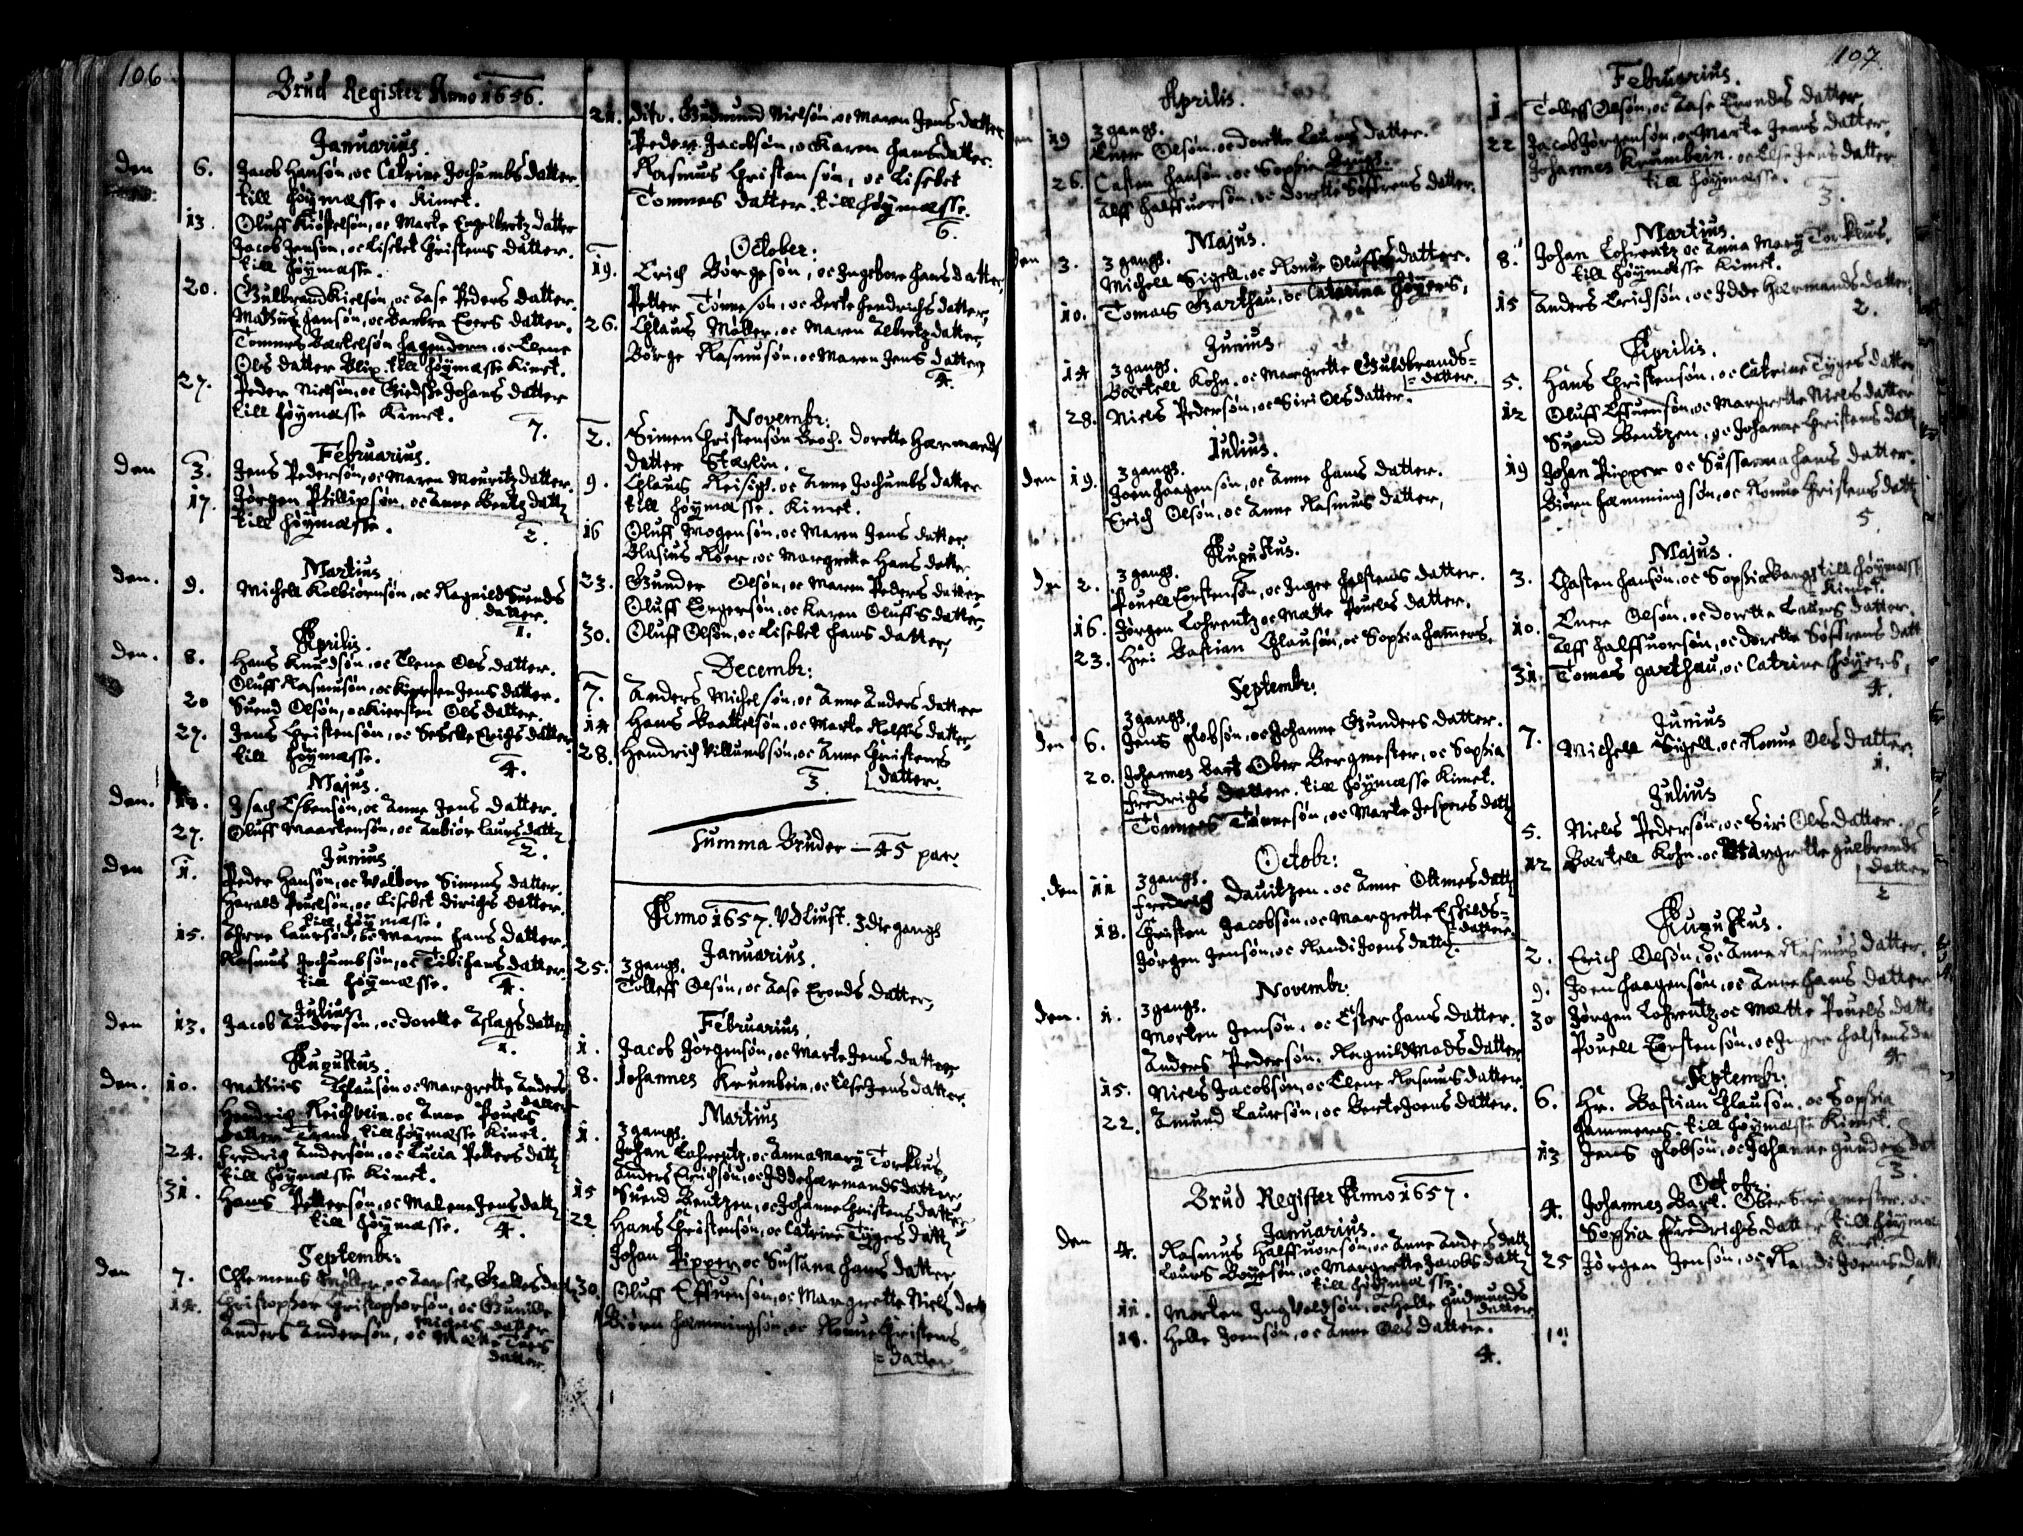 106
Brud Register Anno 1656.
Januarius.
den 6. Jacob Hansøn, oc Catrine Jochumbs datter.
till Høymæsse. Kimet.
13. Oluff Kiøstelsøn, oc Marte Engelbertz datter
Jacob Jensøn, oc Lisebet Christens datter.
till Høymæsse.
20. Gulbrand Kielsøn, oc Aase Peders datter.
Mathius Hansøn, oc Barbra Evers datter.
Tommes Bartelsøn Hagendorn, oc Elene
Ols datter Blix. till Høymæsse Kimet.
27. Peder Nielsøn, oc Giedske Johans datter
till Høymæsse Kimet.
7.
Februarius.
den 3. Jens Pedersøn, oc Maren Mouritz datter.
17. Jørgen Phillipsøn, oc Anne Bentz dattr
till Høymæsse.
2.
Martius
den. 9. Michell Kolbiørnsøn, oc Ragnild Suends
datter.
1.
Aprilis.
den. 8. Hans Knudsøn, oc Elene Ols datter.
Oluff Rasmusøn, oc Kiersten Jens datter.
20 Suend Olsøn, oc Kiersten Ols datter.
27. Jens Christensøn, oc Erichs datter
till Høymæsse.
4.
Majus.
den. Isach Esbensøn, oc Anne Jens datter.
27. Oluff Maartensøn, oc Anbiør Laurs dattr
2.
Junius
den 1. Peder Hansøn, oc Wolbore Simens datter.
Harald Pouelsøn, oc Lisebet Dirichs datter.
till Høymæsse.
15. Laursøn, oc Maren Hans datter.
Rasmus Jochumbsøn, oc Hans datter
till Høymæsse.
4.
Julius
den 13. Jacob Andersøn, oc Dorette Aslags datter
1.
Augustus.
den. 10. Mathius Clausøn oc Margrette Anders
datter
Hendrich Reichwein, oc Anne Pouels
datter Trane, till Høymæsse Kimet.
24. Fredrich Andersøn, oc Lucia Petters dattr
till Høymæsse Kimet.
31. Hans Pettersøn, oc Malene Jens dattr
till Høymæsse.
4.
Septembr:
den 7. Clemens Møller, oc datter
14. Christopher Christophersøn, oc Gunilde
Nigels datter
Anders Andersøn, oc Matte
datter.
24. dito. Gudmund Nielsøn, oc Maren Jens datter
Peder Jacobsøn, oc Karen Hans datter.
Rasmus Christensøn, oc Lisebet
Tommes datter. till Høymæsse.
6.
October:
19. Erich Børgesøn, oc Ingebore Hans datter,
Petter Tønnesøn, oc Berte Hendrichs datter,
26. Claus Møller, oc Maren Albretz datter,
Børge Rasmusøn, oc Maren Jens datter
4.
Novembr:
2. Simen Christensøn Broch. Dorette Harmands
datter Stærlin.
9. Claus Reisigs. oc Anne Jochumbs datter
till Høymæsse. Kimet.
16 Oluff Mogensøn, oc Maren Jens datter
Blasius Røer, oc Margrette Hans datter
23. Gunder Olsøn, oc Maren Peders datter
Oluff Engersøn, oc Karen Oluffs datter,
30. Oluff Olsøn, oc Lisebet Hans datter,
Decembr:
7. Anders Michelsøn, oc Anne Anders datter
14 Hans Baattelsøn, oc Marte Rolffs datter,
28. Hendrich Villumbsøn, oc Anne Christens
datter.
3.
Summa Bruder — 45 par.
Anno 1657. Vdliust. 3die gangs
Januarius.
25. 3 gangs.
Tolleff Olsøn, oc Aase Eronds datter,
Februarius
1. Jacob Jørgensøn, oc Marte Jens datter,
8. Johannes Krumbein, oc Else Jens datter.
Martius
1. 3 gangs.
Johan Lohrentz, oc Anna Mary Torklus,
Anders Erichsøn, oc Idde Harmands datter
15 Suend Bentzen, oc Johanne Christens datter
22 Hans Christensøn, oc Catrine Tyges dattr
Johan Pipper oc Sussana Hans datter
30. Oluff Effuensøn, oc Margrette Niels dattr
Biørn Hæmmingsøn, oc Ronue Christens
=datter.
107.
Aprilis.
19 3 gangs.
Euer Olsøn, oc Dorette Laurs datter.
26. Casten Hansøn, oc Sophia Bangs.
Alff Halffuorsøn, oc Dorette Søffrens datter.
Majus.
den 3. 3 gangs.
Michell Sigell, oc Ronue Oluffs datter.
10. Tomas Garthau, oc Catarina Høyers,
Junius
14 3 gangs.
Bærtell Kohn. oc Margrette Guldbrands=
=datter.
28. Niels Pedersøn, oc Siri Ols datter.
Julius.
den 19. 3 gangs.
Joen Haagensøn, oc Anne Hans datter.
Erich Olsøn, oc Anne Rasmus datter,
Augustus.
2. 3 gangs.
Pouell Torstensøn, oc Inger Holstens datter.
16. Jørgen Lohrentz oc Matte Pouels datter.
23. Hr: Bastian Clausøn, oc Sophia Hamers,
Septembr:
3 gangs.
den 6. Jens Globsøn, oc Johanne Gunders datter.
20. Johannes Bart Ober Bergmester, oc Sophia
Fredrichs datter. till Høymæsse Kimet.
Tønnes Tønnesøn, oc Marte Jespers dattr
Octobr:
den 11 3 gangs.
Fredrich Dauitzen. oc Anne Oltmes dattr
18. Christen Jacobsøn, oc Margrette Eskilds=
=datter.
Jørgen Jensøn, oc Randi Joens dattr.
Novembr:
den. 1. 3 gangs.
Morten Jensøn, oc Ester Hans datter.
Anders Pedersøn. Ragnild Mads datter
15. Niels Jacobsøn, oc Elene Rasmus datter
22. Amund Laursøn, oc Berte Joens datter.
Brud Register Anno 1657.
Januarius.
den 4. Rasmus Halffuorsøn, oc Anne Anders dattr
Laurs Boyesøn, oc Margrette Jacobs dattr
till Høymæsse.
11. Morten Inguoldsøn, oc Helle Gudmunds
datter
18. Helle Joensøn, oc Anne Ols datter.
4.
Februarius.
1 Tolleff Olsøn, oc Aase Eronds datter,
22 Jacob Jørgensøn, oc Marte Jens datter,
Johannes Krumbein. oc Else Jens datter
till Høymæsse.
3.
Martius.
8. Johan Lohrentz oc Anna Mary Torklus,
till Høymæsse Kimet.
15 Anders Erichsøn, oc Idde Harmands datter,
2.
Aprilis.
5. Hans Christensøn, oc Catrine Tyges datter
12 Oluff Effuensøn, oc Margrette Niels datter
Suend Bentzen, oc Johanne Christens datt
19 Johan Pipper oc Sussanna Hans datter.
Biørn Hæmmingsøn, oc Ronue Christens dattr
5.
Majus.
3. Chasten Hansøn, oc Sophia Bangs till Høymæss
Kimet.
10. Euer Olsøn, oc Dorette Laurs datter.
Alff Halffuorsøn, oc Dorette Søffrens datt
31 Tomas Garthau, oc Catrine Høyers,
4.
Junius
7. Michell Sigell, oc Ronue Ols datter.
1.
Julius
5. Niels Pedersøn, oc Siri Ols datter.
12 Bærtell Kohn. oc Margrette Gulbrands
datter
2
Augustus.
2. Erich Olsøn, oc Anne Rasmus datter.
9. Joen Haagensøn, oc Anne Hans datter
30 Jørgen Lohrentz oc Mætte Pouels datt
Pouell Torstensøn, oc Inger Holstens da
4
Septembr:
6. Hr. Bastian Clausøn, oc Sophia
Hammers. till Høymæsse Kimet.
13 Jens Globsøn, oc Johanne Gunders dat
3.
Octobr:
4. Johannes Bart. Ober Bergmester. oc
Sophia Fredrichs datter till Høymæ
Kimet.
25 Jørgen Jensøn, oc Randi Joens datt